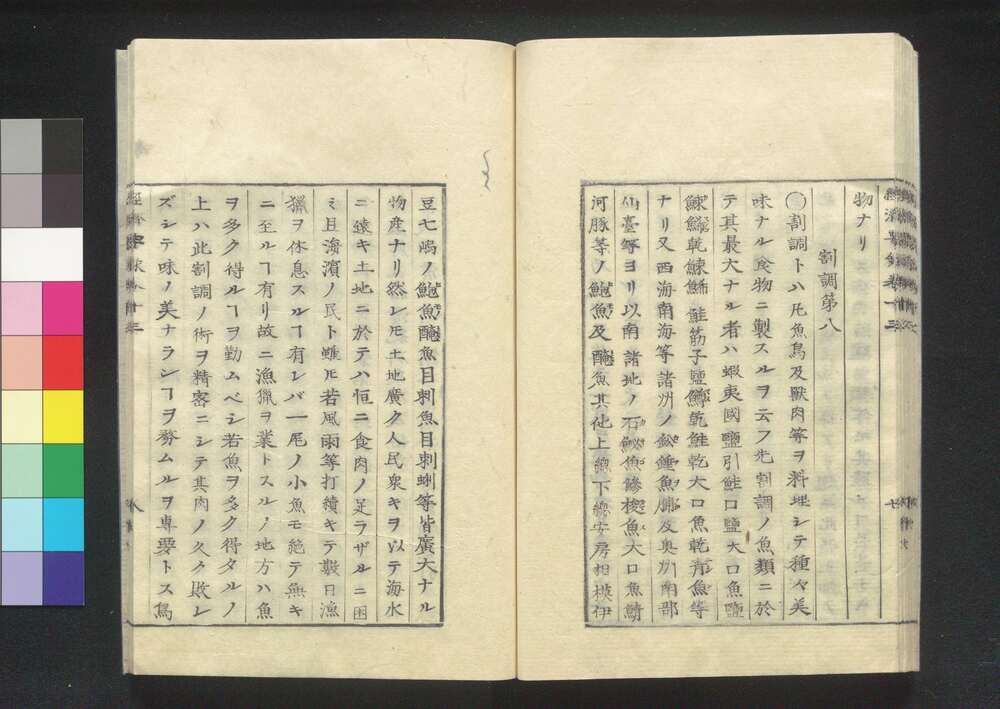 物ナリ
割調第八
割調トハ凡魚鳥及獸肉等ヲ料理シテ種々美
味ナル食物ニ製スルヲ云フ先割調ノ魚類ニ於
テ其最大ナル者ハ蝦夷國鹽引鮭口鹽大口魚鹽
鰊鯑乾鰊鯑鮭筋子鹽鱒乾鮭乾大口魚乾青魚等
ナリ又西海南海等諸洲ノ魚及奥州南部
仙臺等ヨリ以南諸地ノ石魚大口魚鯖
河豚等ノ鮑魚及醃魚其他上總下總安房相模伊
豆七嶋ノ鮑魚醃魚目刺魚目刺蜊等皆廣大ナル
物産ナリ然レモ土地廣ク人民衆キヲ以テ海水
ニ遠キ土地ニ於テハ恒ニ食肉ノ足ラザルニ困
ミ且海濱ノ民ト雖モ若風雨等打續キテ數日漁
獵ヲ休息スルヿ有レバ一尾ノ小魚モ絶テ無キ
ニ至ルヿ有リ故ニ漁獵ヲ業トスルノ地方ハ魚
ヲ多ク得ルヿヲ勤ムベシ若魚ヲ多ク得タルノ
上ハ此割調ノ術ヲ精密ニシテ其肉ノ久ク敗レ
ズシテ味ノ美ナランヿヲ務ムルヲ専要トス爲
七
八